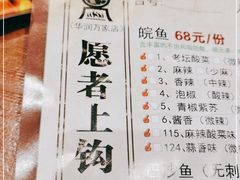 (华润万家店)
愿者上钩
皖鱼 68元/份
1、老坛酸菜
2、麻辣 (少麻)
3、香辣 (中辣)
4、泡椒 (酸辣)
5、青椒紫苏
6、酱香 (微辣)
115、麻辣酸菜味
124、蒜香味
鱼 (无刺